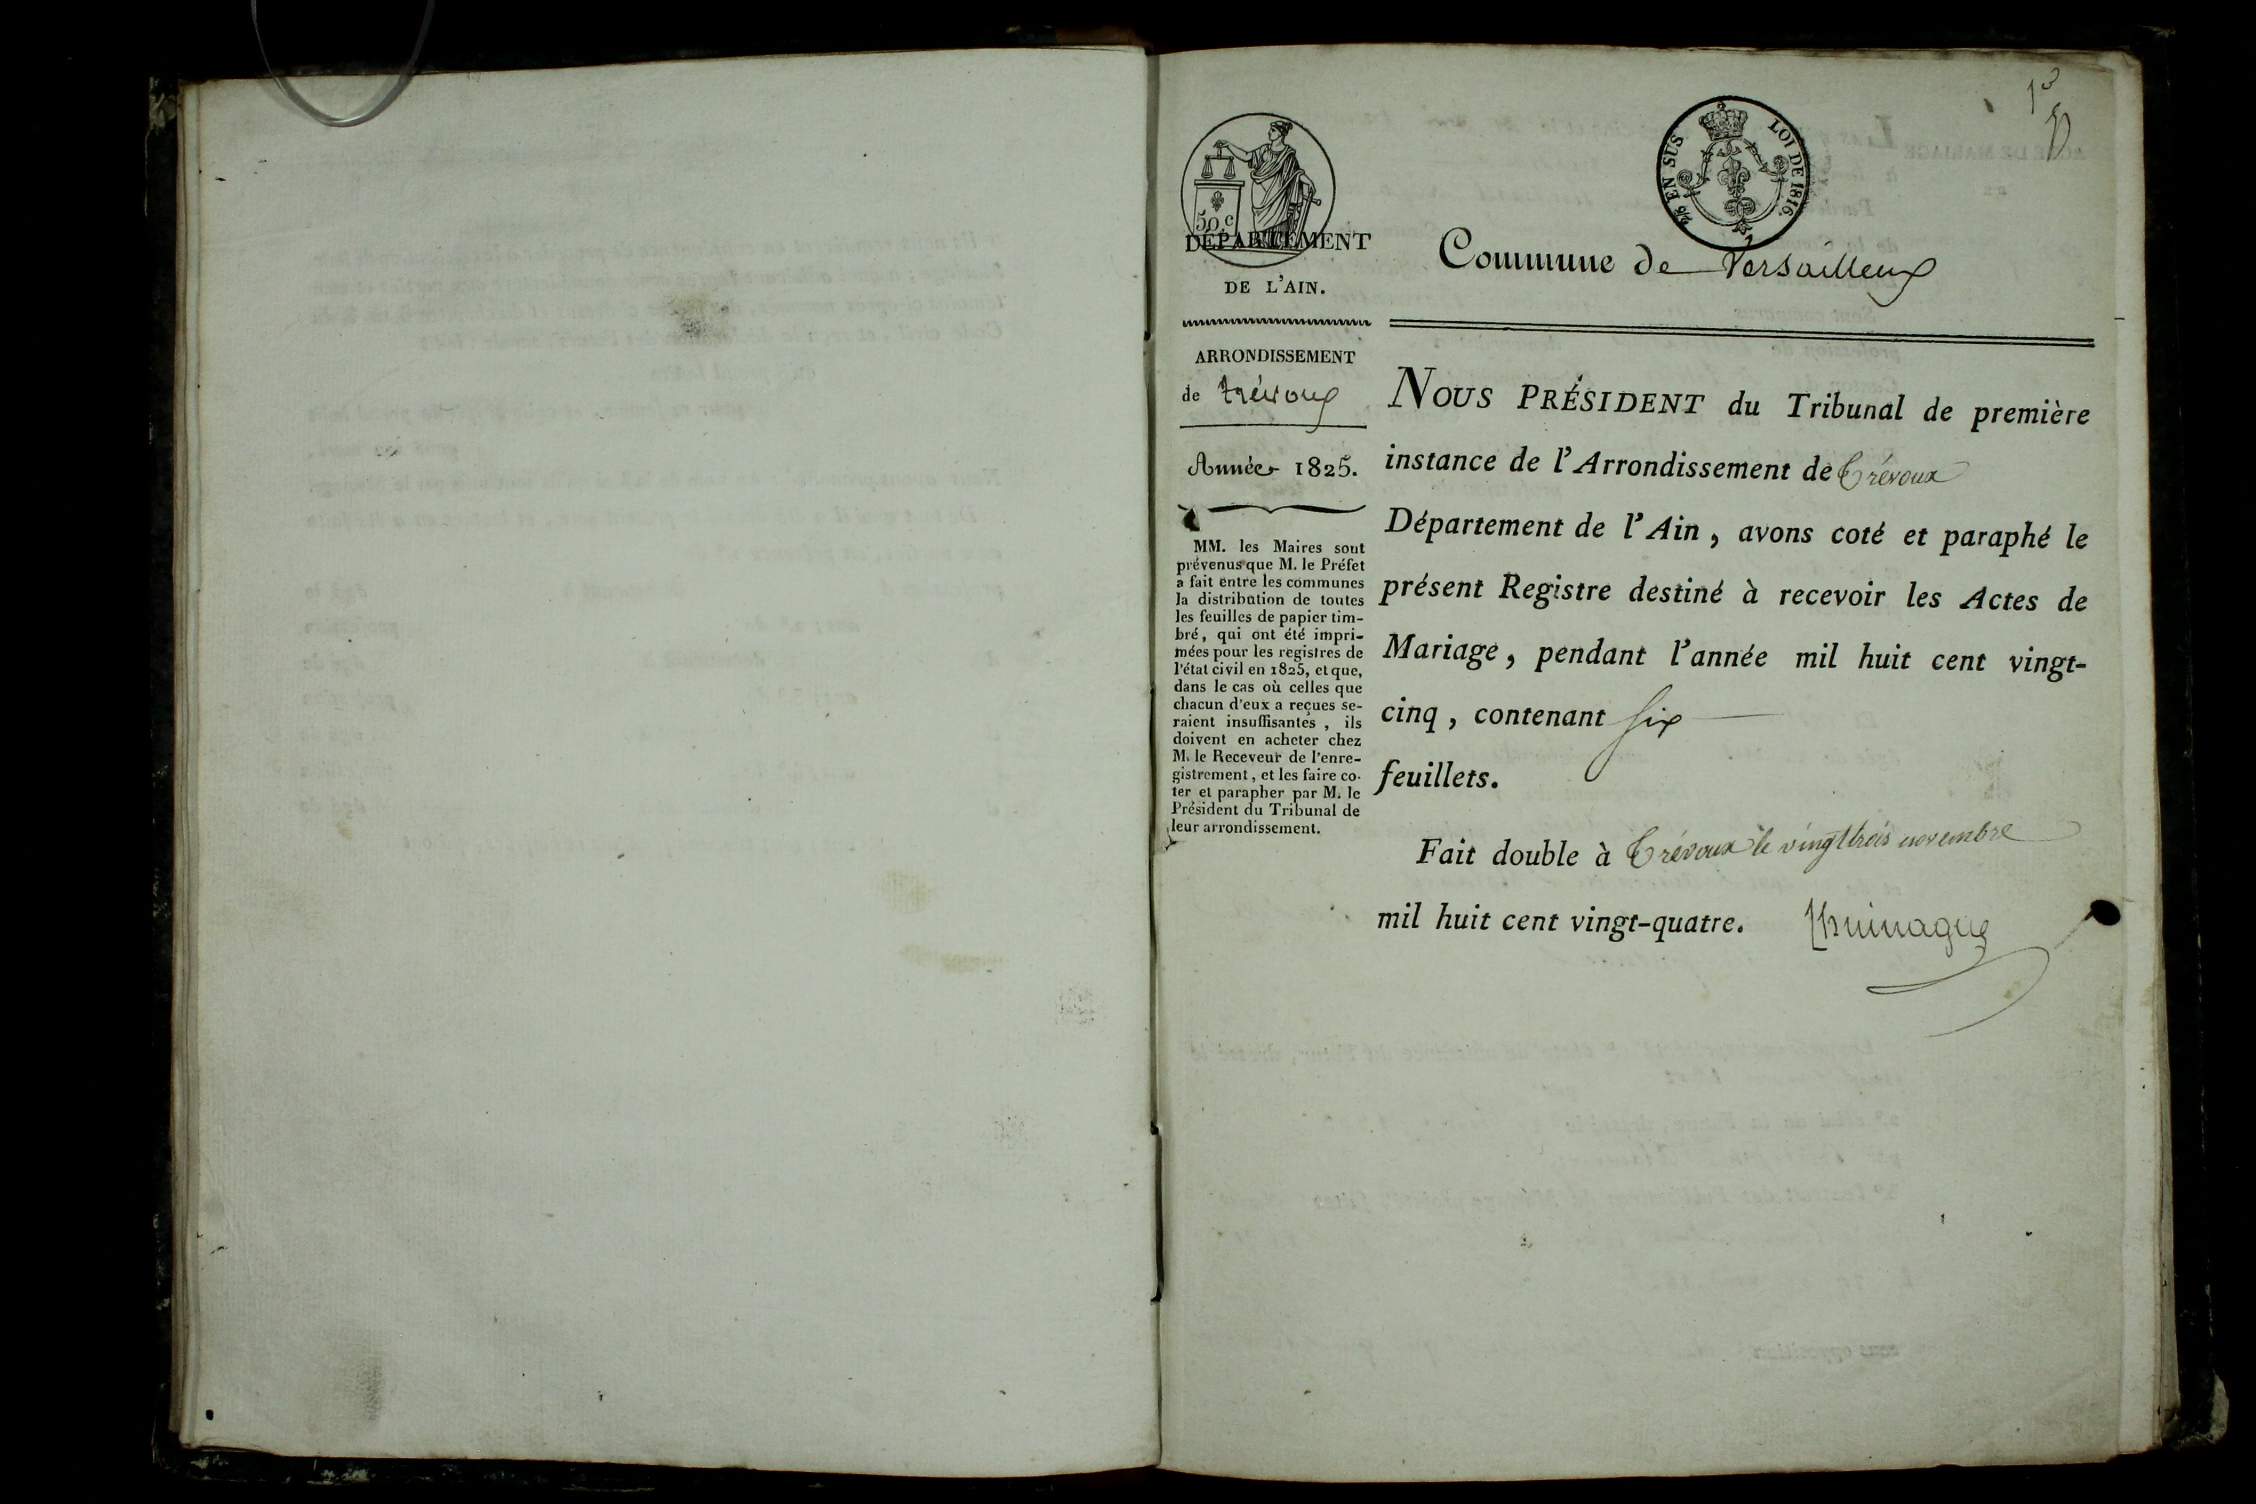 1er
50 c.
EN SUS
LOI DE 1816.
DÉPARTEMENT
DE L'AIN.
Commune de Versailleux
ARRONDISSEMENT
de trévoux
Année 1825.
MM. les Maires sont
prévenus que M. le Préfet
a fait entre les communes
la distribution de toutes
les feuilles de papier tim-
bré, qui ont été impri-
mées pour les registres de
l'état civil en 1825, et que,
dans le cas où celles que
chacun d'eux a reçues se-
raient insuffisantes, ils
doivent en acheter chez
M. le Receveur de l'enre-
gistrement, et les faire co-
ter et parapher par M. le
Président du Tribunal de
leur arrondissement.
NOUS PRÉSIDENT du Tribunal de première
instance de l'Arrondissement de Trévoux
Département de l'Ain, avons coté et paraphé le
présent Registre destiné à recevoir les Actes de
Mariage, pendant l'année mil huit cent vingt-
cinq, contenant six
feuillets.
Fait double à Trévoux le vingt trois novembre
mil huit cent vingt-quatre.